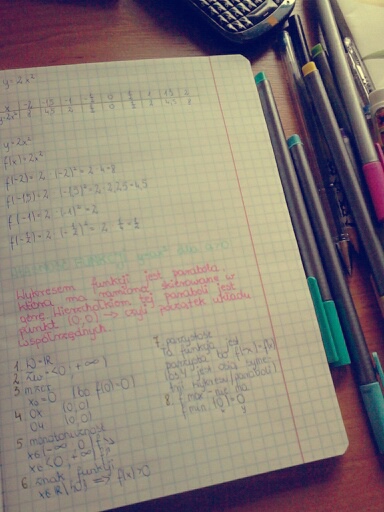 y=2x²
x | -2 | -1,5 | -1 | -½ | 0 | ½ | 1 | 1,5 | 2
y=2x² | 8 | 4,5 | 2 | ½ | 0 | ½ | 2 | 4,5 | 8
y=2x²
f(x)=2x²
f(-2)=2·(-2)²=2·4=8
f(-1,5)=2·(-1,5)²=2·2,25=4,5
f(-1)=2·(-1)²=2
f(-½)=2·(-½)²=2·¼=½
FUNKCJI y=ax² dla a>0
Wykresem funkcji jest parabola,
która ma ramiona skierowane w
górę. Wierzchołkiem tej paraboli jest
punkt (0,0) → czyli początek układu
współrzędnych.
1. D=R
2. Zw=<0;+∞)
3. m. zerowe
x₀=0 (bo f(0)=0)
4. OX (0,0)
OY (0,0)
5. monotoniczność
x∈(-∞;0) f↘
x∈<0;+∞) f↗
6. znak funkcji
x∈R\{0} f(x)>0
7. parzystość
ta funkcja jest
parzysta bo f(-x)=f(x)
(oś y jest osią symetrii
tej paraboli)
8. f max - nie ma
f min. f(0)=0